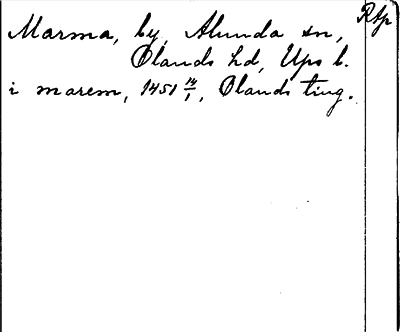 Marma, by, Alunda sn,
Rtp
Olands hd, Ups l.
i marem, 1451 14/1, Olands ting.